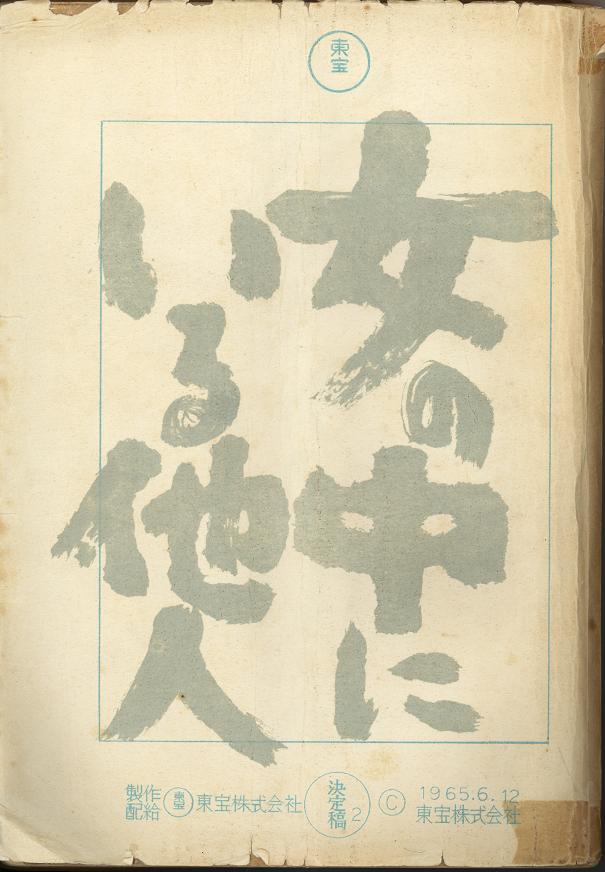 東宝
女の中に
いる他人
製作
配給
東宝
東宝株式会社
決定稿2
© 1965.6.12
東宝株式会社